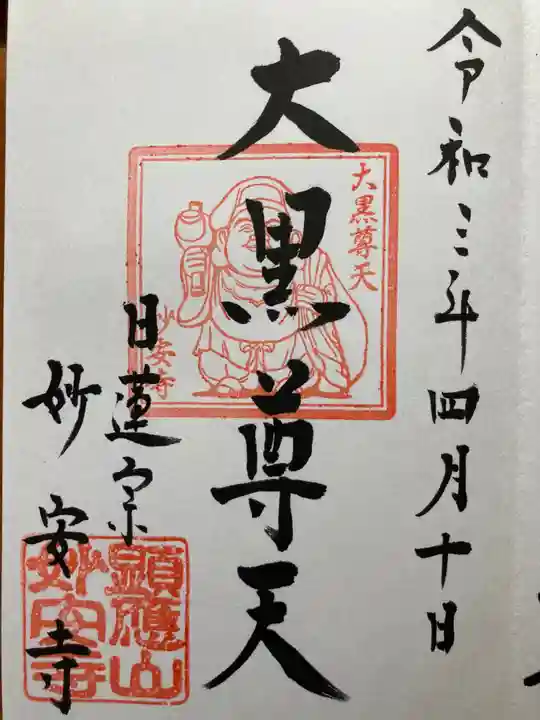 令和三年四月十日
大黒尊天
大黒尊天
妙安寺
日蓮宗
妙安寺
顕應山
妙安寺